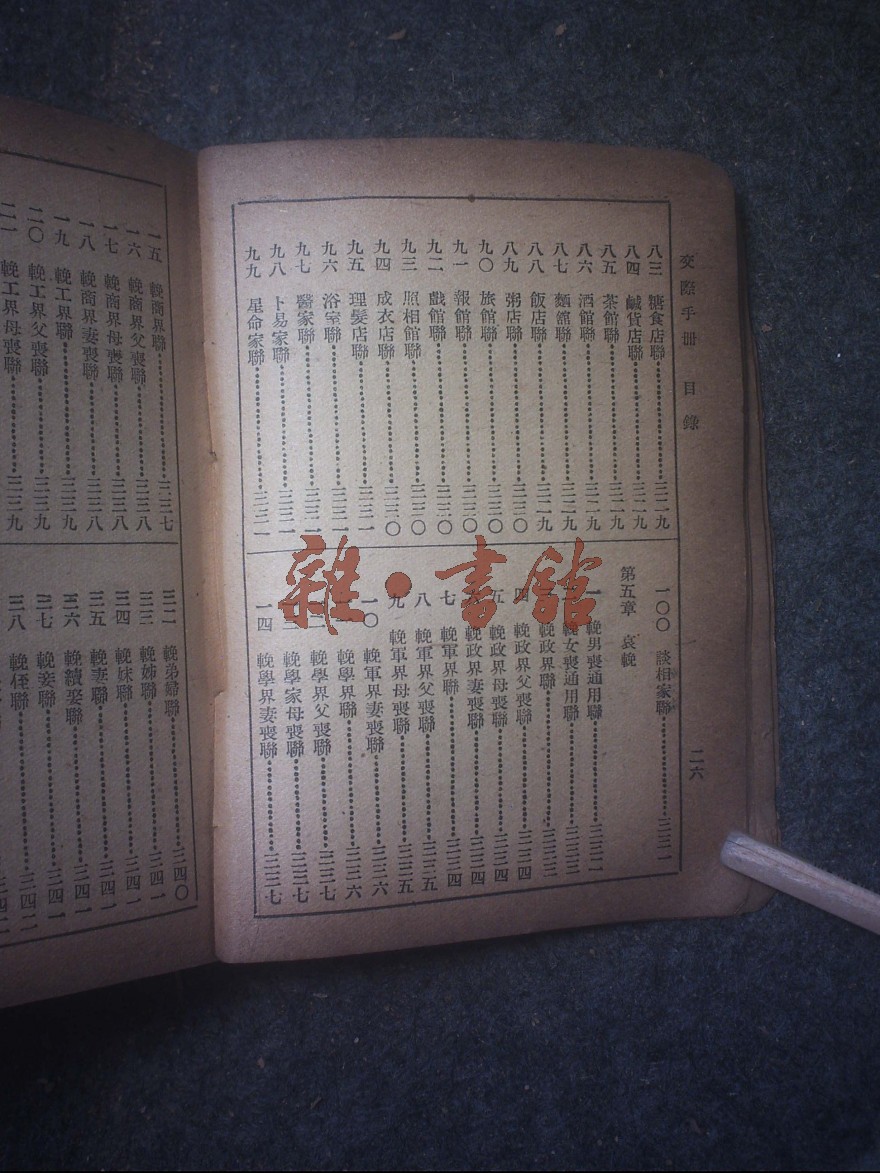 交際手册 目錄 二六
八三 糖食店聯……二一九
八四 鹹貨店聯……二一九
八五 茶館聯……二一九
八六 酒館聯……二一九
八七 麵館聯……二一九
八八 飯店聯……二一九
八九 粥店聯……二二〇
九〇 旅館聯……二二〇
九一 報館聯……二二〇
九二 戲館聯……二二〇
九三 照相館聯……二二〇
九四 成衣店聯……二二〇
九五 理髮店聯……二二一
九六 浴室聯……二二一
九七 醫家聯……二二一
九八 卜易家聯……二二一
九九 星命家聯……二二一
一〇〇 談相家聯……二二一
第五章 哀輓
一 輓男喪通用聯……二二二
輓女喪通用聯……二二二
輓政界聯……二二三
四 輓政界父喪聯……二二四
五 輓政界母喪聯……二二四
輓政界妻喪聯……二二四
七 輓軍界聯……二二四
八 輓軍界父喪聯……二二五
九 輓軍界母喪聯……二二五
一〇 輓軍界妻喪聯……二二六
輓學界聯……二二六
輓學界父喪聯……二二七
輓學家母喪聯……二二七
一四 輓學界妻喪聯……二二七
一五 輓商界聯……二二七
一六 輓商界父喪聯……二二八
一七 輓商界母喪聯……二二八
一八 輓商界妻喪聯……二二八
一九 輓工界聯……二二九
二〇 輓工界父喪聯……二二九
二一 輓工界母喪聯……二二九
三二 輓弟婦聯……二四〇
三三 輓姊聯……二四一
三四 輓妹聯……二四一
三五 輓妻聯……二四一
三六 輓續娶聯……二四一
三七 輓妾聯……二四一
三八 輓侄聯……二四二
雜·書館